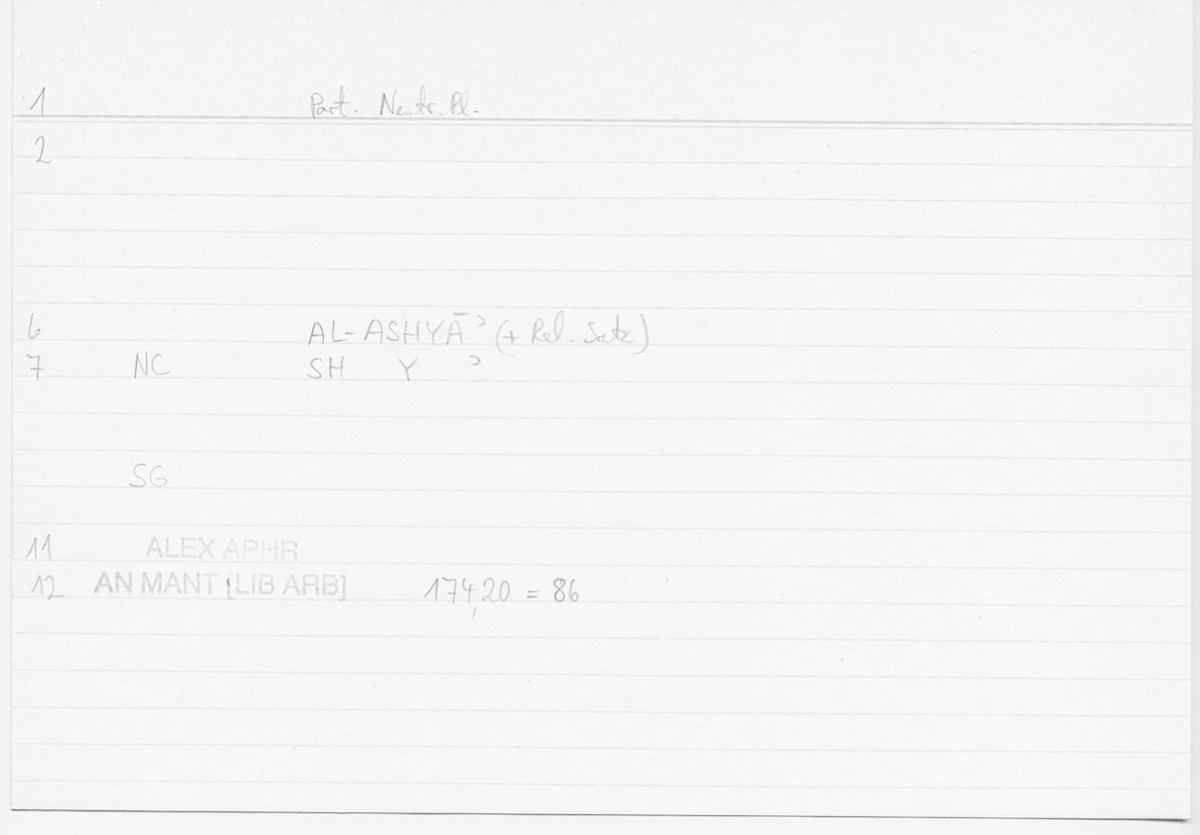 1 Part. Neutr. Pl.
2
6 AL-ASHYĀʾ (+ Rel. Satz)
7 NC SH Y ʾ
SG
11 ALEX APHR
12 AN MANT [LIB ARB] 174,20 = 86